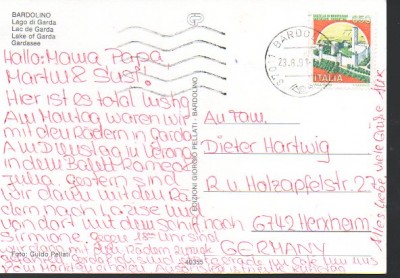 BARDOLINO
Lago di Garda
Lac de Garda
Lake of Garda
Gardasee
Hallo Mama, Papa,
Martin & Susi!
Hier ist es total lustig
Am Montag waren wir
mit den Rädern in Garda
Am Dienstag in Verona
in dem Ballett Romeo
Julia. Gestern sind
wir dann mit den Rä
dern nach Lazise und
von dort mit dem Schiff nach
Sirmione. Gegen 18 Uhr sind
wir dann mit den Rädern zurück
Foto: Guido Pellati
EDIZIONI GIORGIO PELLATI - BARDOLINO
40355
BARDOLINO
23.8.91
850
ITALIA
An Fam.
Dieter Hartwig
R. v. Holzapfelstr. 27
6742 Herxheim
GERMANY
Alles Liebe, viele Grüße